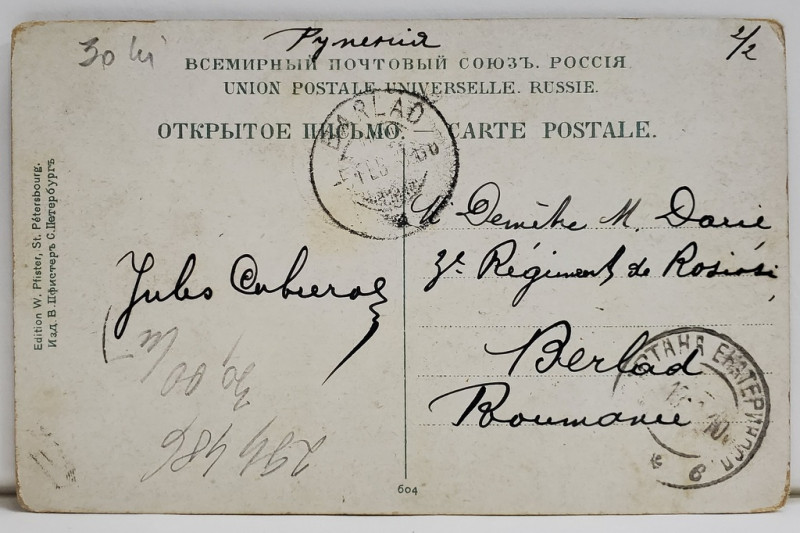 30 lei
Румения
2/2
ВСЕМІРНЫЙ ПОЧТОВЫЙ СОЮЗЪ. РОССІЯ
UNION POSTALE UNIVERSELLE. RUSSIE.
ОТКРЫТОЕ ПИСЬМО. — CARTE POSTALE.
BARLAD
Edition W. Pfister, St. Pétersbourg.
Изд. В. Пфистеръ С.Петербургъ
Demètre M. Darie
3e Régiment de Rosiori
Jules
Berlad
Roumanie
ЕКАТЕРИНОСЛ
6
30,00 lei
294486
604